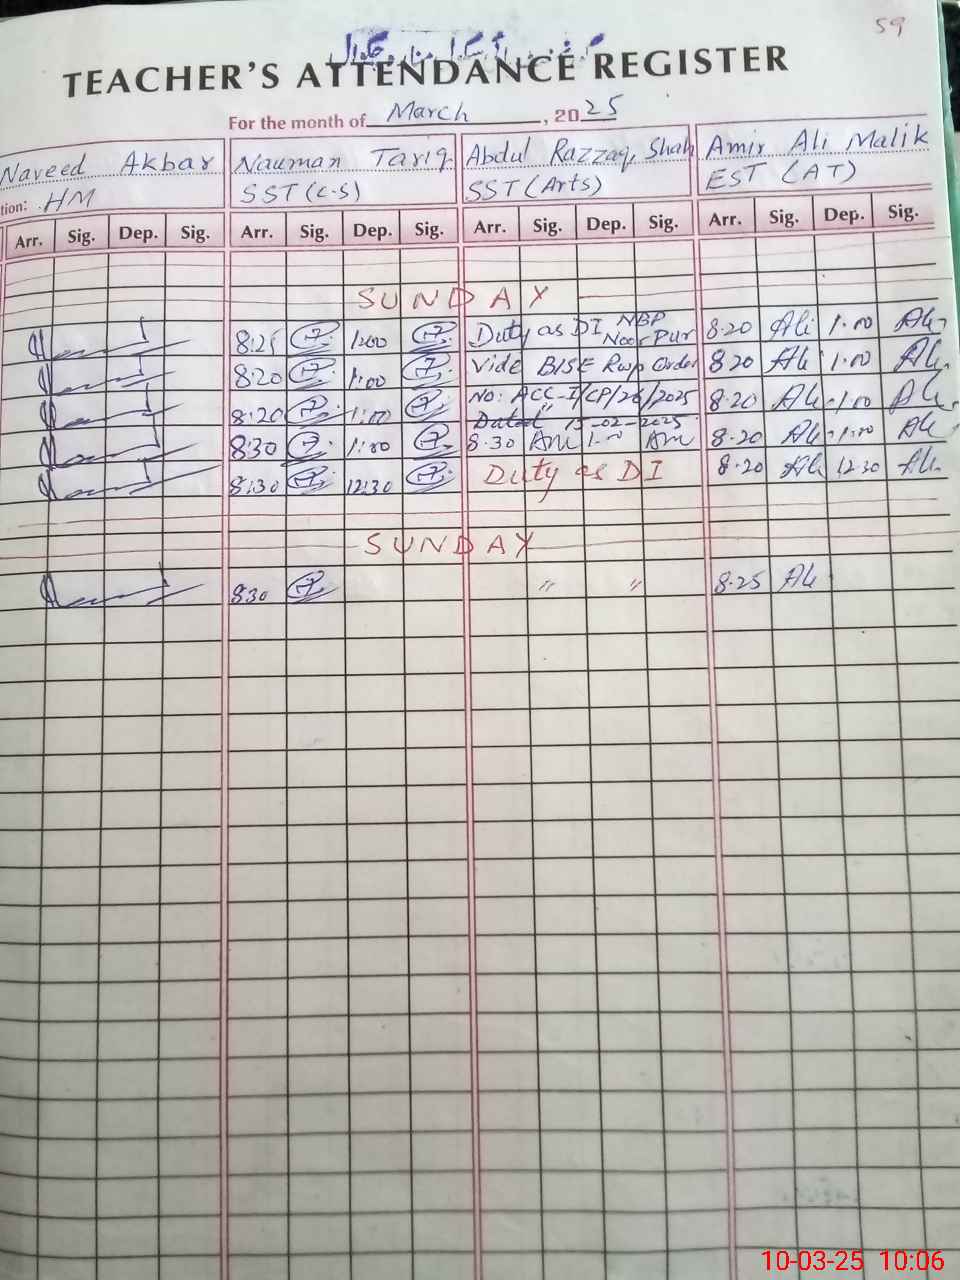 59
TEACHER'S ATTENDANCE REGISTER
For the month of March, 2025
Naveed Akbar Nauman Tariq Abdul Razzaq Shah Amir Ali Malik
tion: HM SST (C.S) SST (Arts) EST (AT)
Arr. Sig. Dep. Sig. Arr. Sig. Dep. Sig. Arr. Sig. Dep. Sig. Arr. Sig. Dep. Sig.
SUNDAY
8:25 1:00 Duty as DI NBP Noor Pur 8.20 Ali 1.00 Ali
8:20 1:00 Vide BISE Rwp Order 8.20 Ali 1.00 Ali
8:20 1:00 No: ACC-I/CP/26/2025 8.20 Ali 1.00 Ali
Dated 15-02-2025
8:30 1:00 8.30 Am 1.00 Am 8.20 Ali 1.00 Ali
8:30 12:30 Duty as DI 8.20 Ali 12.30 Ali
SUNDAY
8:30 〃 〃 8.25 Ali
10-03-25 10:06